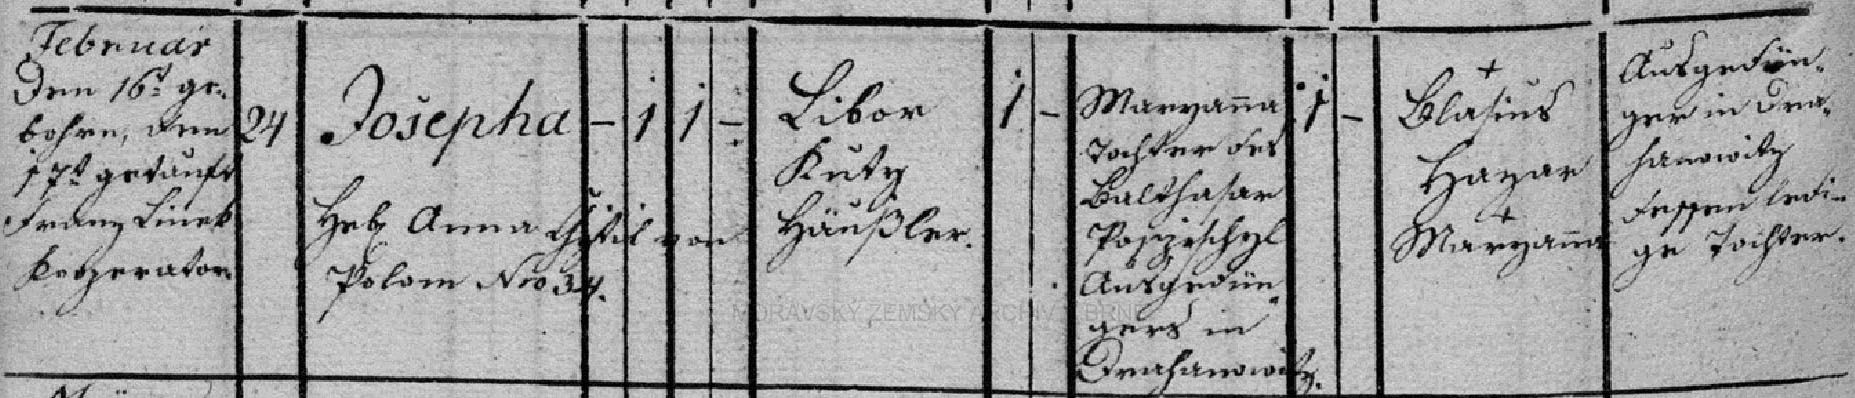 Februar
Den 16t ge-
bohren, den
17t getauft
Franz Linek
Kooperator.
24
Josepha
Heb Anna von
Polom No 34.
– 1 1 –
Libor
Kuty
Häußler.
1 –
Maryanna
Tochter des
Balthasar
Pospischyl
Ausgedün-
gers in
Drahanowitz.
1 –
+
Blasius
Hazar
+
Maryanna
Ausgedün-
ger in Dra-
hanowitz
dessen ledi-
ge Tochter.
MORAVSKÝ ZEMSKÝ ARCHIV BRNO